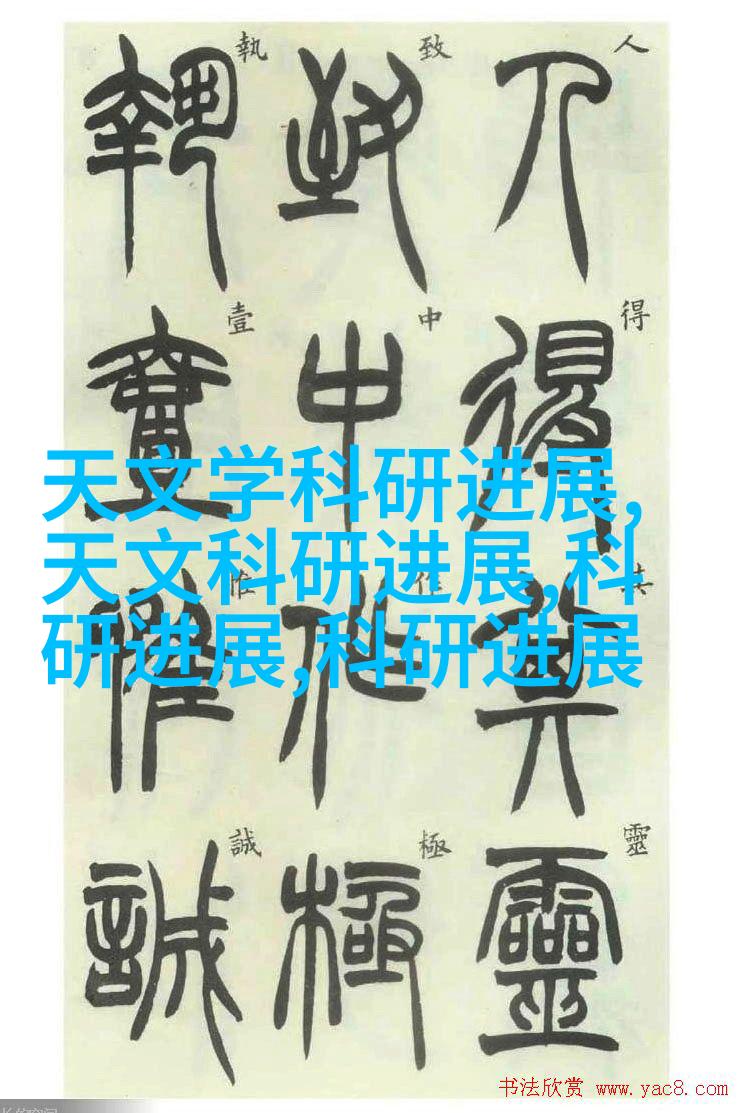 人得其靈
致中作極
執壹惟誠
人
得
其
靈
致
中
作
極
執
壹
惟
誠
天文学科研进展,
天文科研进展,科
研进展,科研进展
书法欣赏 www.yac8.com